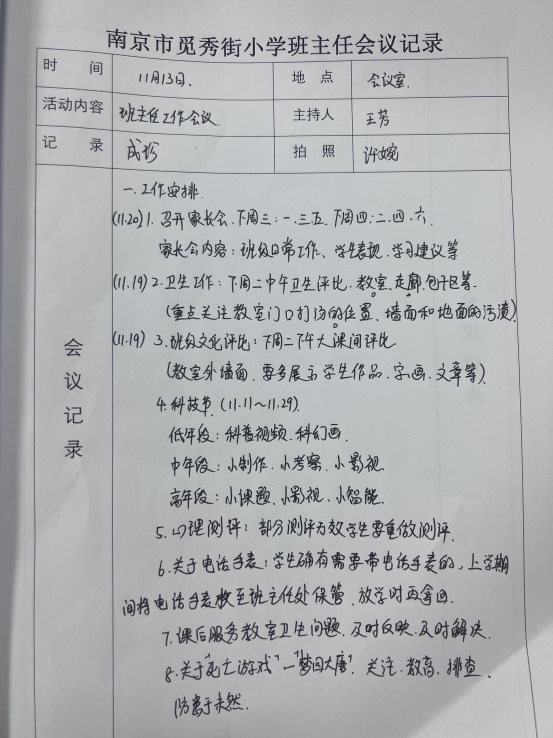 南京市觅秀街小学班主任会议记录
时 间 11月13日. 地 点 会议室.
活动内容 班主任工作会议. 主持人 王芳
记 录 成珍 拍 照 许婉
会议记录
一.工作安排.
(11.20) 1. 召开家长会.下周三:一.三.五. 下周四:二.四.六.
家长会内容:班级日常工作、学生表现.学习建议等
(11.19) 2.卫生工作:下周二中午卫生评比.教室.走廊.包干区等.
(重点关注教室门口打汤的位置、墙面和地面的污渍).
(11.19) 3.班级文化评比:下周二下午大课间评比
(教室外墙面.要多展示学生作品、字画、文章等)
4.科技节.(11.11~11.29).
低年段:科普视频.科幻画.
中年段:小制作.小考察.小影视.
高年段:小课题.小影视.小智能.
5.心理测评:部分测评无效学生要重做测评.
6.关于电话手表:学生确有需要带电话手表的,上学期
间将电话手表放至班主任处保管、放学时再拿回.
7.课后服务教室卫生问题.及时反映.及时解决.
8.关于"死亡游戏"—"梦回大唐".关注.教育.排查.
防患于未然.